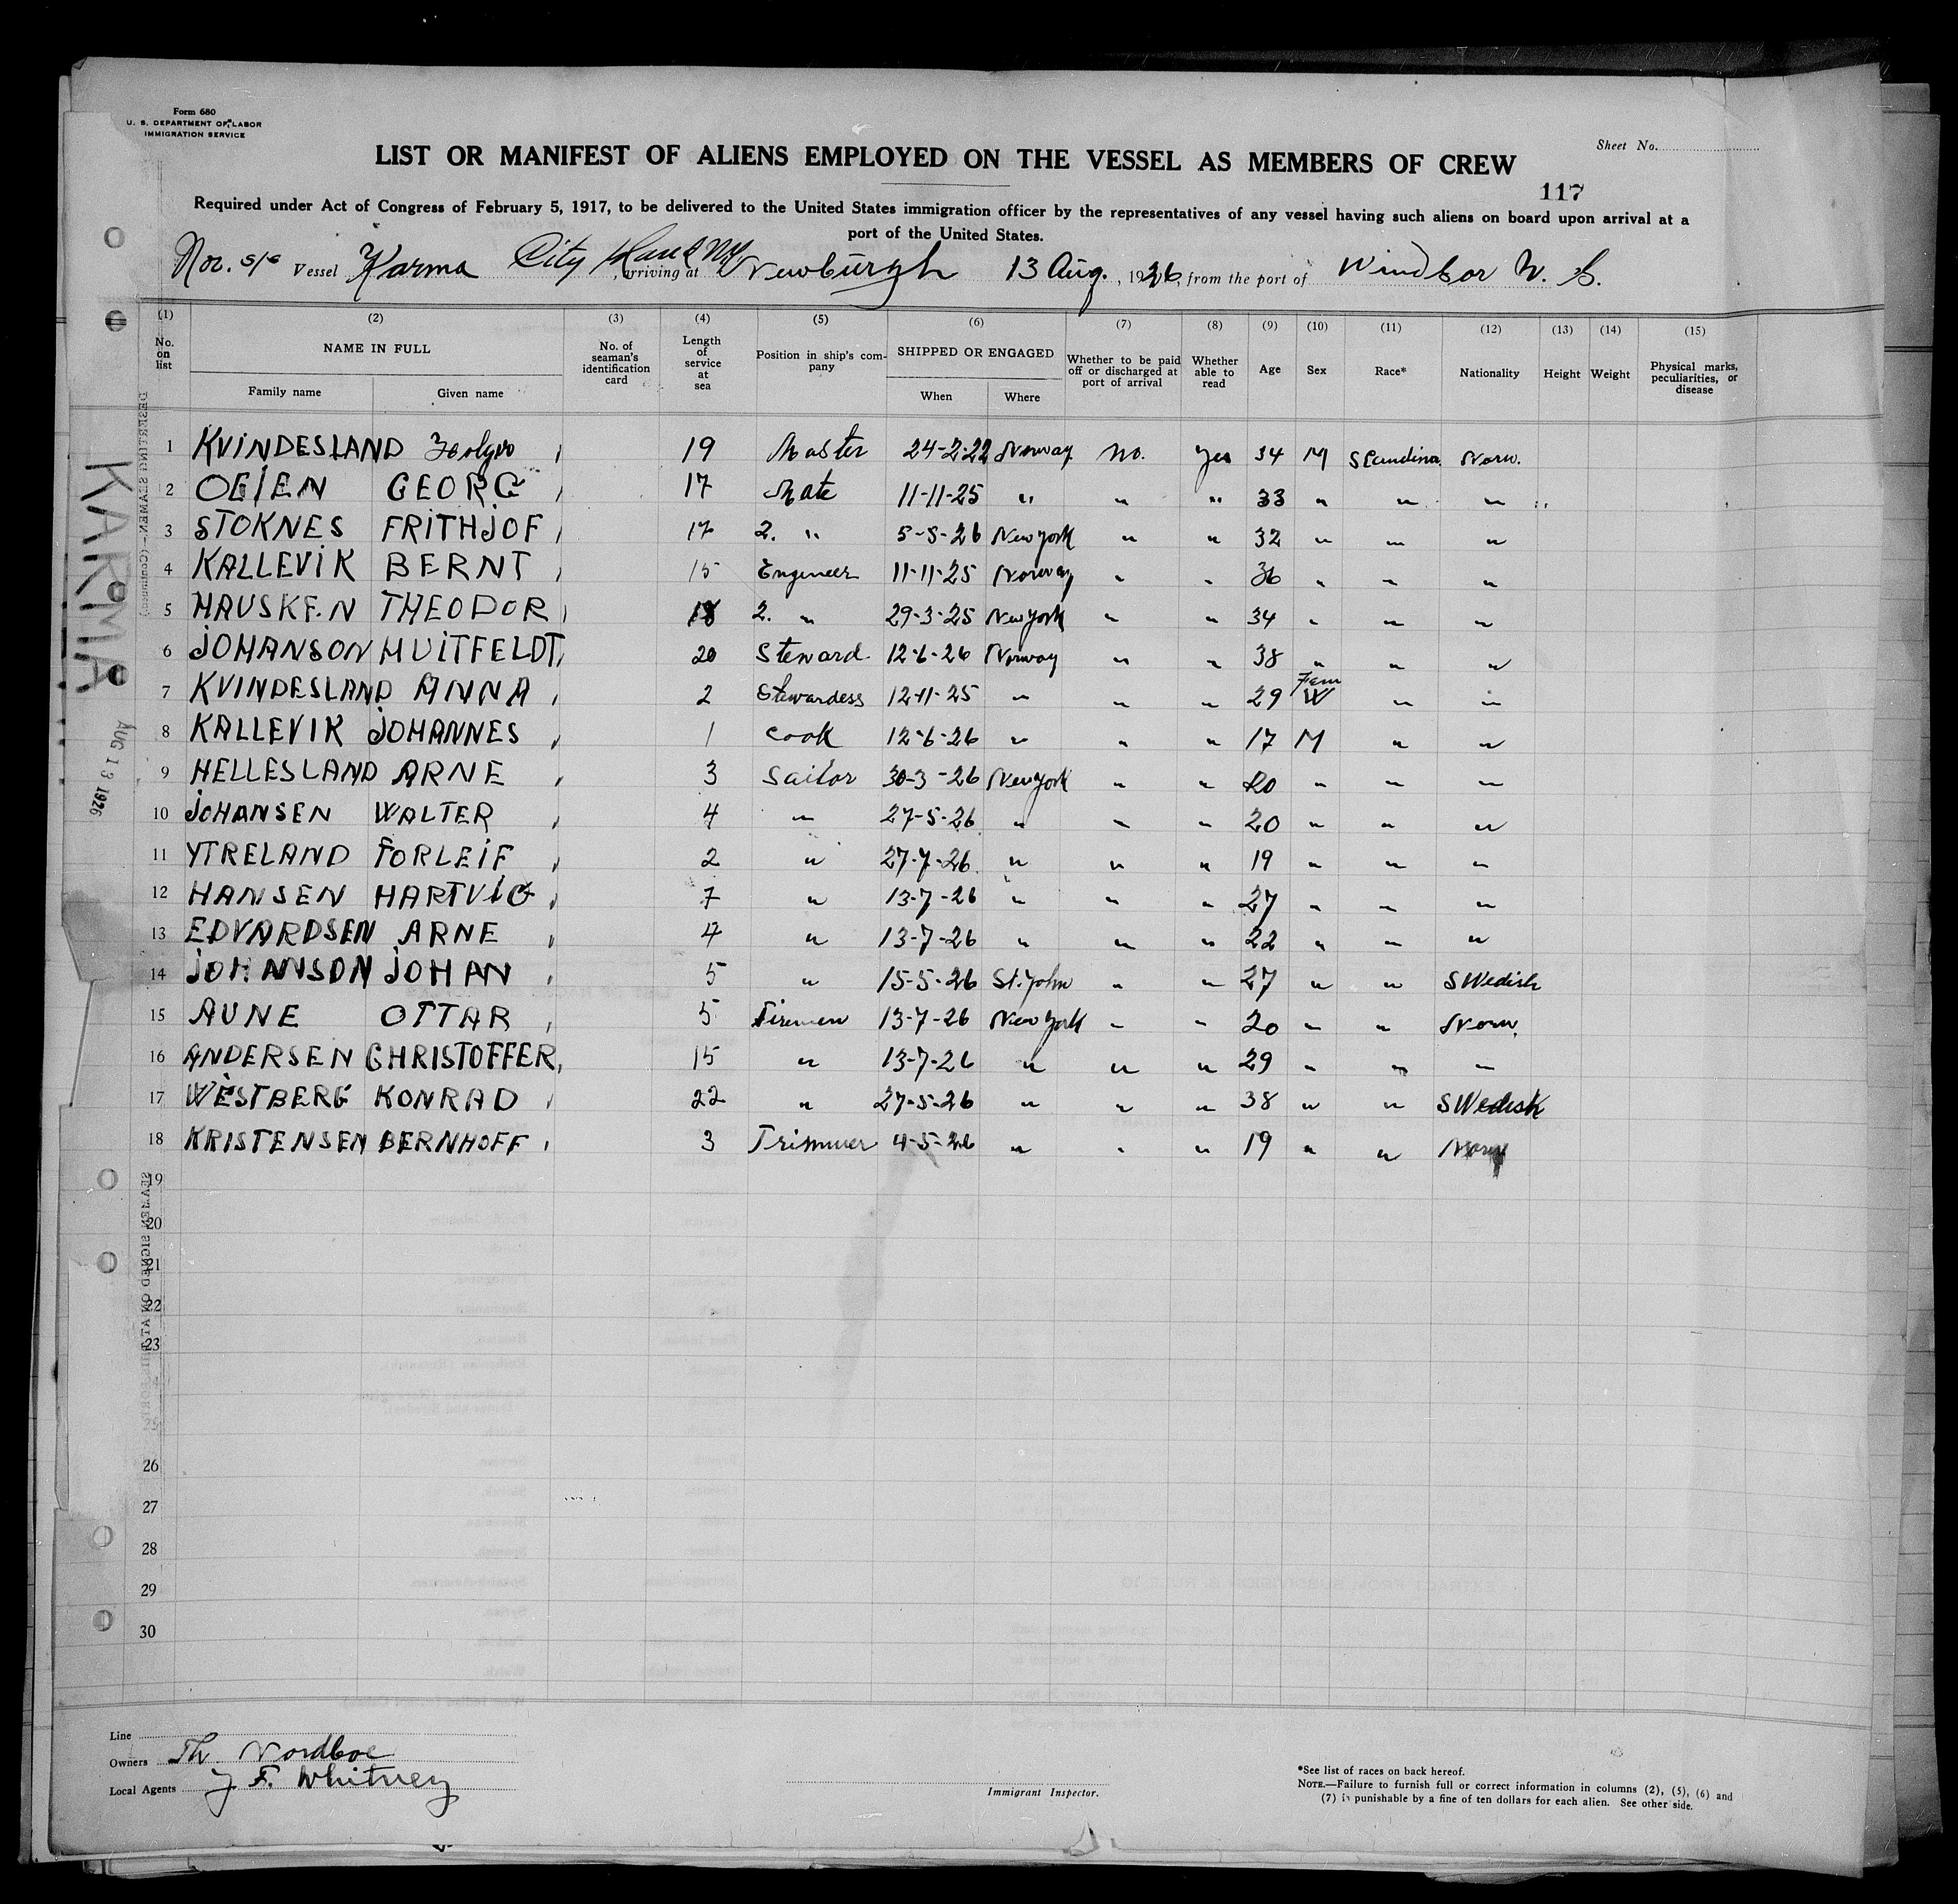 Form 680
U. S. DEPARTMENT OF LABOR
IMMIGRATION SERVICE
Sheet No.
LIST OR MANIFEST OF ALIENS EMPLOYED ON THE VESSEL AS MEMBERS OF CREW
117
Required under Act of Congress of February 5, 1917, to be delivered to the United States immigration officer by the representatives of any vessel having such aliens on board upon arrival at a
port of the United States.
Nor. s/s Vessel Karma City Island NY, arriving at Newburgh 13 Aug., 1926, from the port of Windsor N. S.
(1) (2) (3) (4) (5) (6) (7) (8) (9) (10) (11) (12) (13) (14) (15)
No. on list NAME IN FULL No. of seaman's identification card Length of service at sea Position in ship's company SHIPPED OR ENGAGED Whether to be paid off or discharged at port of arrival Whether able to read Age Sex Race* Nationality Height Weight Physical marks, peculiarities, or disease
Family name Given name When Where
1 KVINDESLAND 19 Master 24-2-22 Norway No. yes 34 M Scandina. Norw.
2 OGIEN GEORG 17 Mate 11-11-25 " " " 33 " " "
3 STOKNES FRITHJOF 17 2. " 5-5-26 New York " " 32 " " "
4 KALLEVIK BERNT 15 Engineer 11-11-25 Norway " " 36 " " "
5 HAUSKEN THEODOR 18 2. " 29-3-25 New York " " 34 " " "
6 JOHANSON HUITFELDT 20 Steward 12-6-26 Norway " " 38 " " "
7 KVINDESLAND ANNA 2 Stewardess 12-11-25 " " " 29 Fem W " "
8 KALLEVIK JOHANNES 1 Cook 12-6-26 " " " 17 M " "
9 HELLESLAND ARNE 3 Sailor 30-3-26 New York " " 20 " " "
10 JOHANSEN WALTER 4 " 27-5-26 " " " 20 " " "
11 YTRELAND TORLEIF 2 " 27-7-26 " " " 19 " " "
12 HANSEN HARTVIG 7 " 13-7-26 " " " 27 " " "
13 EDVARDSEN ARNE 4 " 13-7-26 " " " 22 " " "
14 JOHANSON JOHAN 5 " 15-5-26 St. John " " 27 " " Swedish
15 AUNE OTTAR 5 Firemen 13-7-26 New York " " 20 " " Norw.
16 ANDERSEN CHRISTOFFER 15 " 13-7-26 " " " 29 " " "
17 WESTBERG KONRAD 22 " 27-5-26 " " " 38 " " Swedish
18 KRISTENSEN BERNHOFF 3 Trimmer 4-5-26 " " " 19 " " Norw
19
20
21
22
23
26
27
28
29
30
KARMA
AUG 13 1926
Line
Owners Th. Nordboe
Local Agents J F. Whitney
Immigrant Inspector.
*See list of races on back hereof.
NOTE.—Failure to furnish full or correct information in columns (2), (5), (6) and
(7) is punishable by a fine of ten dollars for each alien. See other side.